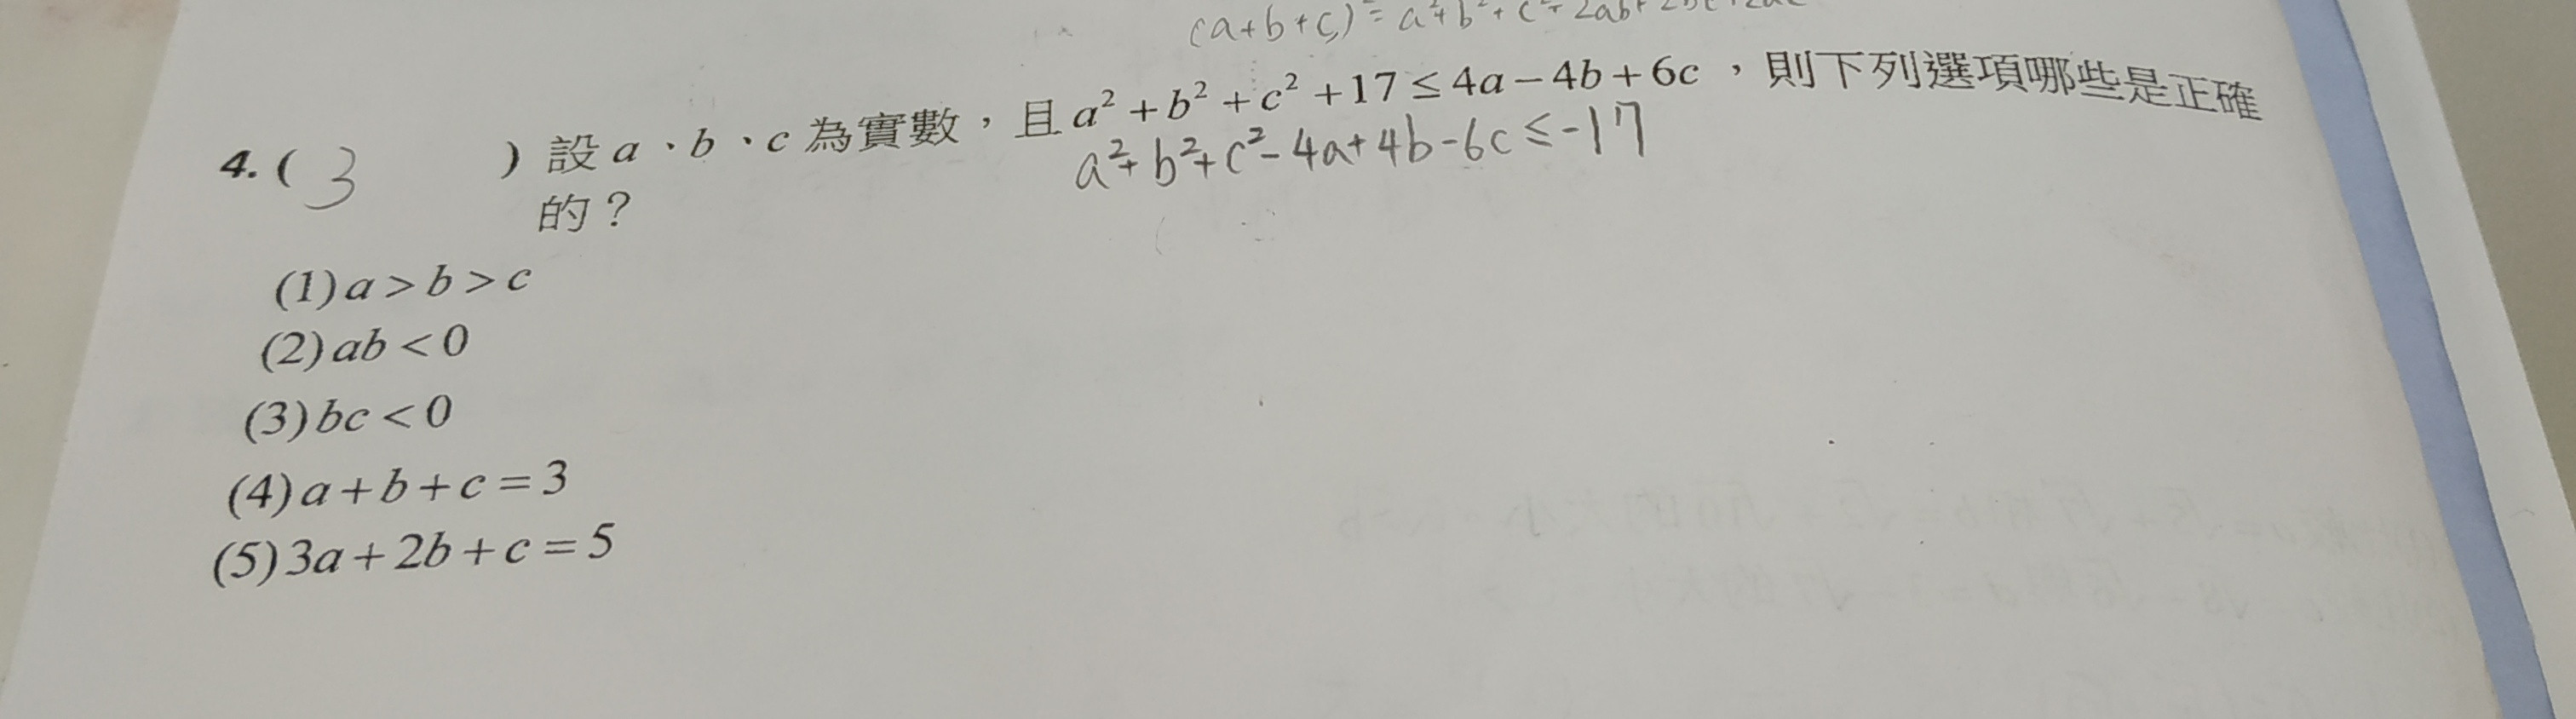 (a+b+c)² = a²+b²+c²+2ab+
4. ( 3 ) 設 a、b、c 為實數，且 a² + b² + c² + 17 ≤ 4a − 4b + 6c，則下列選項哪些是正確
a²+b²+c²−4a+4b−6c ≤ −17
的？
(1) a > b > c
(2) ab < 0
(3) bc < 0
(4) a + b + c = 3
(5) 3a + 2b + c = 5